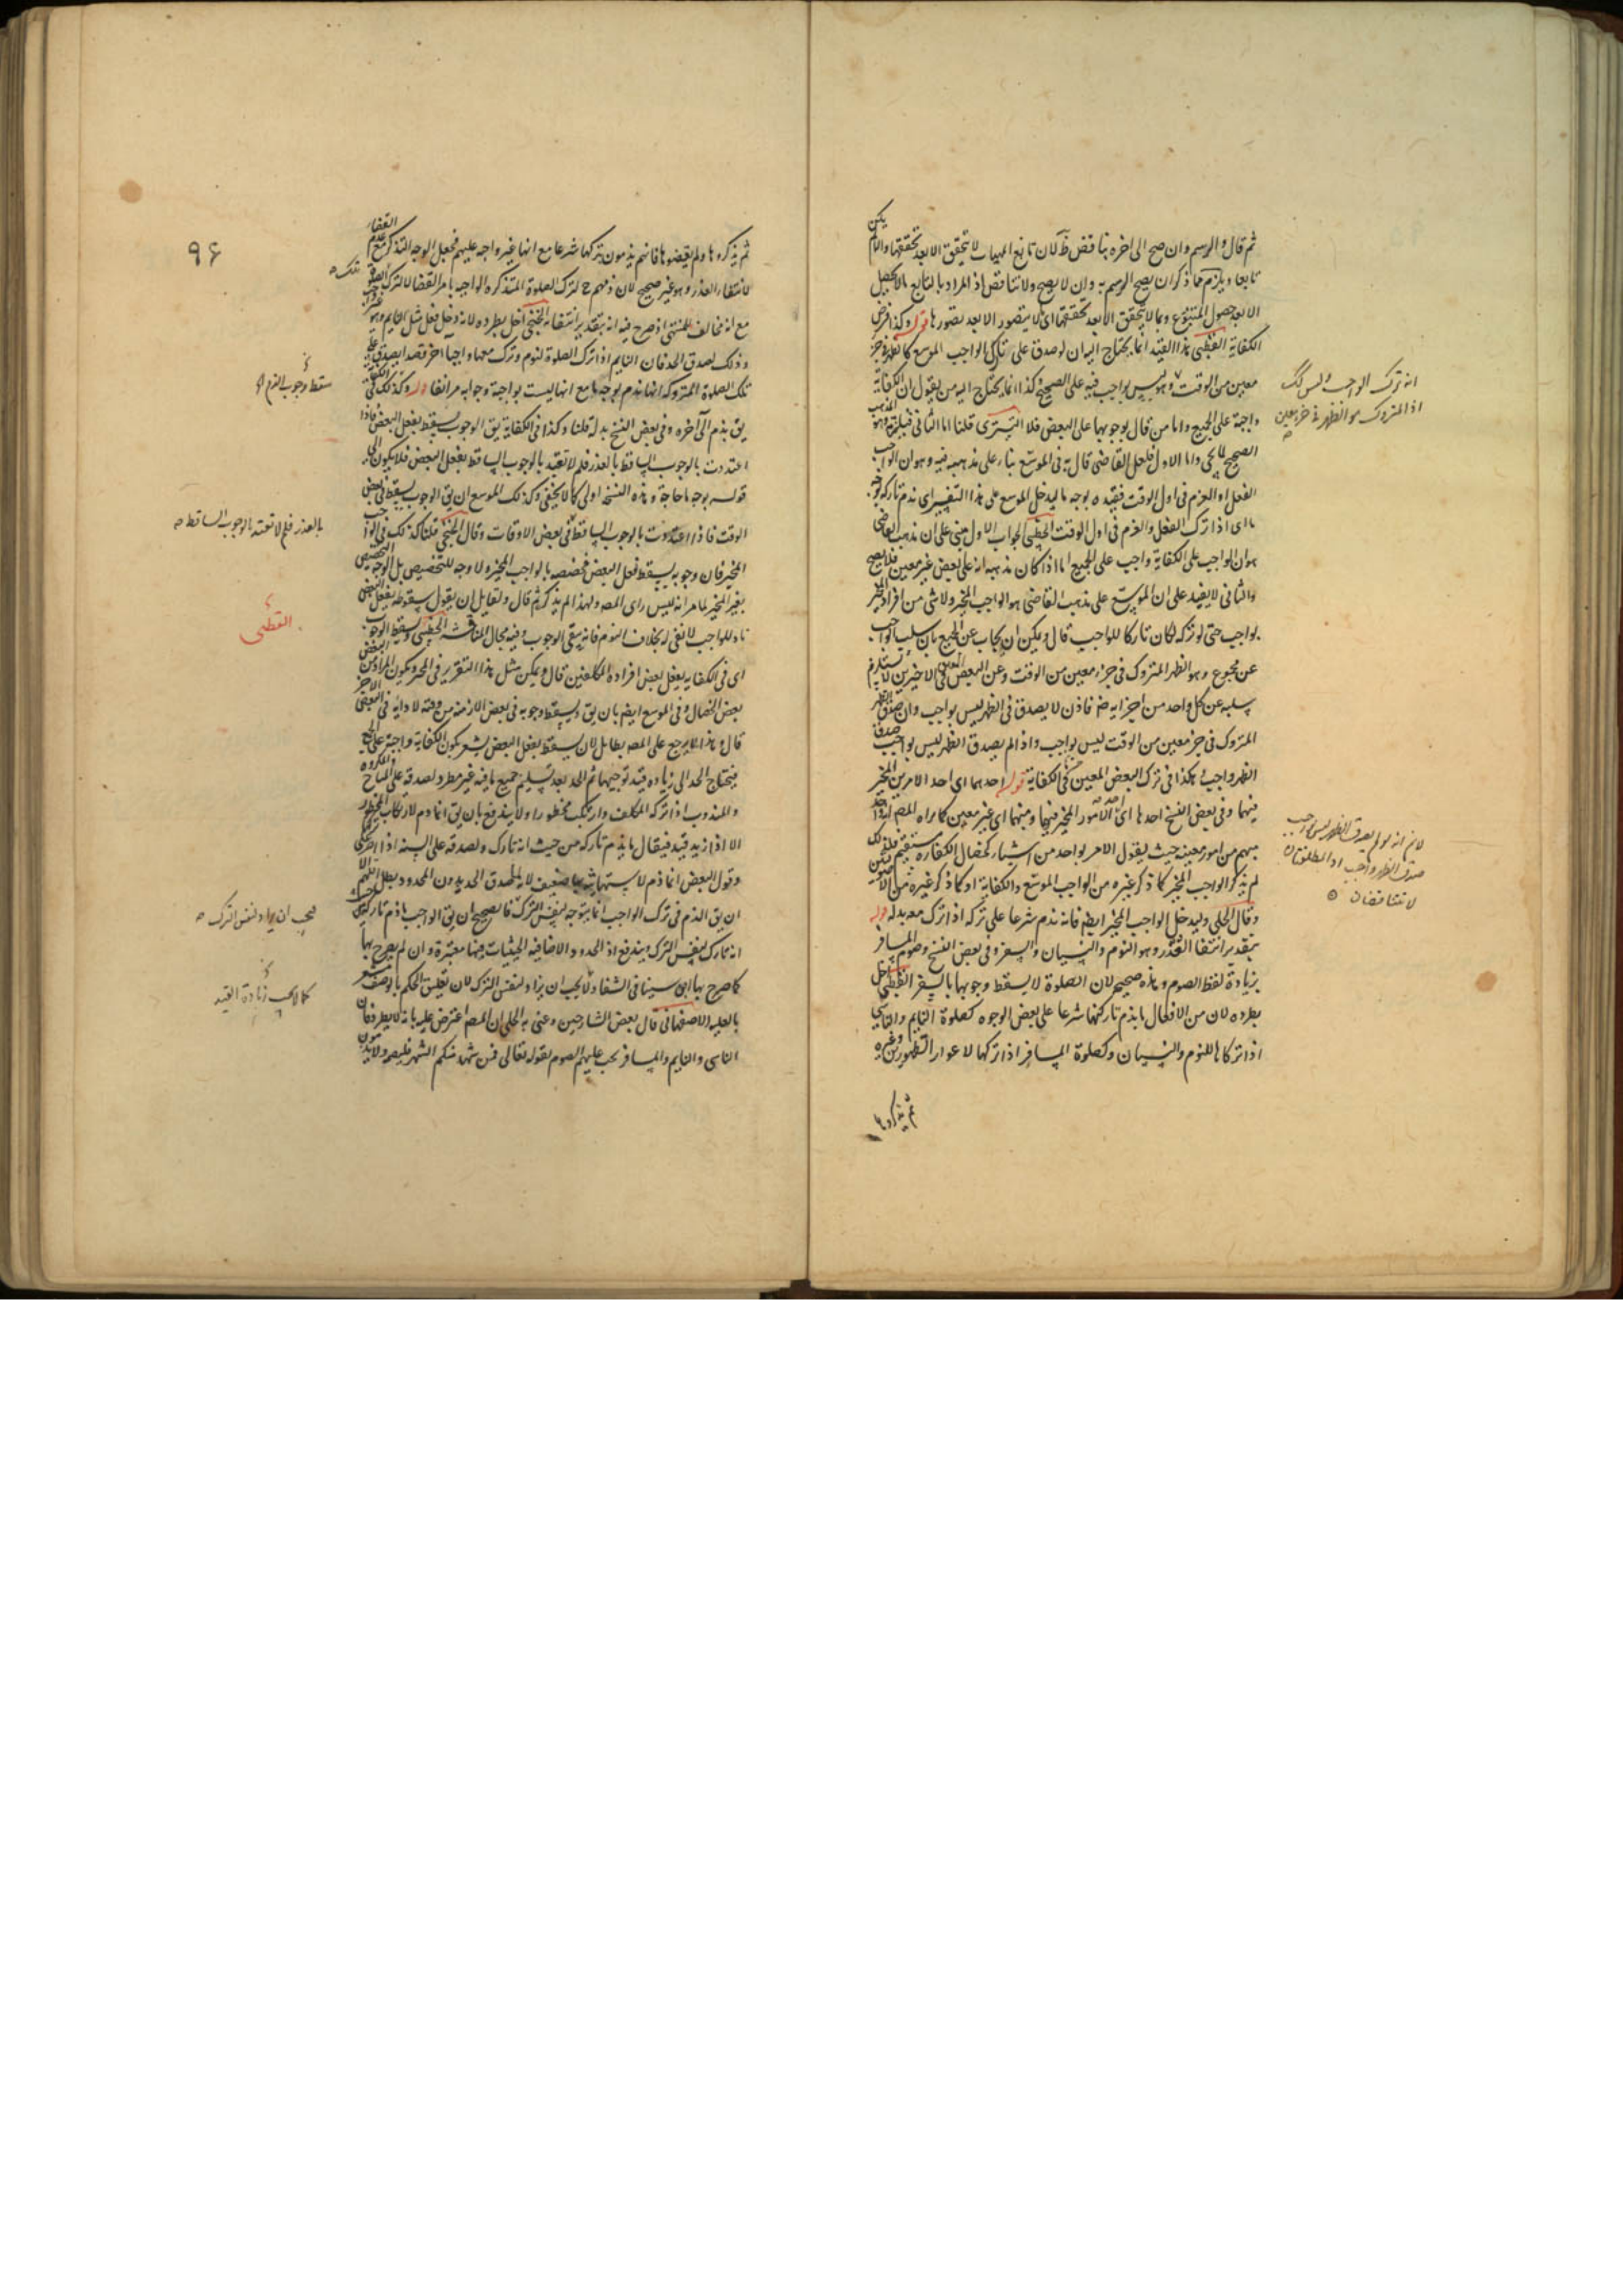 ثم قال والرسم وان صح الى اخره يناقض لان تابع المهيات لا يتحقق الا بعد تحققها والا لم يكن
تابعا ويلزم مما ذكر ان يصح الرسم به وان لا يصح ولا تناقض اذ المراد بالتابع ما لا يحصل
الا بعد حصول المتبوع وبما لا يتحقق الا بعد تحققها اى لا يتصور الا بعد تصورها قوله وكذا فرض
الكفاية القطبى هذا القيد انما يحتاج اليه ان لو صدق على تارك الواجب الموسع كالظهر فى جزء
معين من الوقت وهو ليس بواجب فيه على الصحيح وكذا انما يحتاج اليه من يقول ان الكفاية
واجبة على الجميع واما من قال بوجوبها على البعض فلا التسترى قلنا اما الثانى فيلتزمه وهو المذهب
الصحيح واما الاول فلعل القاضى قال به فى الموسع بناء على مذهبه فيه وهو ان الواجب
الفعل او العزم فى اول الوقت فقيده بوجه ما ليدخل الموسع على هذا التفسير اى يذم تاركه بوجه
ما اى اذا ترك الفعل والعزم فى اول الوقت الخطبى الجواب الاول مبنى على ان مذهب القاضى
هو ان الواجب على الكفاية واجب على الجميع اما اذا كان مذهبه انه على بعض غير معين فلا يصح
والثانى لا يفيد على ان الموسع على مذهب القاضى هو الواجب المخير ولا شى من افراد المخير
بواجب حتى لو تركه لكان تاركا للواجب قال ويمكن ان يجاب عن الجميع بان سلب الواجب
عن مجموع وهو الظهر المتروك فى جزء معين من الوقت وعن البعض فى الاخيرين لا يستلزم
سلبه عن كل واحد من اجزايه فاذن لا يصدق فى الظهر ليس بواجب وان صدق الظهر
المتروك فى جزء معين من الوقت ليس بواجب واذا لم يصدق الظهر ليس بواجب صدق
الظهر واجب وهكذا فى ترك البعض المعين فى الكفاية قوله احدهما اى احد الامرين المخير
فيهما وفى بعض النسخ احدها اى احد الامور المخير فيها ومنهما اى غير معين كما يراه المص
مبهم من امور معينة حيث يقول الامر بواحد من اشياء كخصال الكفارة مستقيم
لم يذكر الواجب المخير كما ذكر غيره من الواجب الموسع والكفاية او كما ذكر غيره
وقال الحلى وليدخل الواجب المخير ايضا فانه يذم شرعا على تركه اذا ترك مع بدله قوله
بتقدير انتفا العذر وهو النوم والنسيان والسفر وفى بعض النسخ وصوم المسافر
بزيادة لفظ الصوم وهذه صحيح لان الصلوة لا يسقط وجوبها بالسفر القطبى اخل
بطرده لان من الافعال ما يذم تاركها شرعا على بعض الوجوه كصلوة النايم والناسى
اذا تركاها للنوم والنسيان وكصلوة المسافر اذا تركها لاعواز الطهورين وغيره
ثم يذكروها
انه ترك الواجب وليس كك
اذ المتروك هو الظهر فى جزء معين
لانم انه لو لم يصدق الظهر ليس بواجب
صدق الظهر واجب اذ المطلقتان
لا تتناقضان
٩٦
ثم يذكروها ولم يقضوها فانهم يذمون بتركها شرعا مع انها غير واجبة عليهم فجعل الوجه التذكر مع عدم القضاء
لانتفاء العذر وهو غير صحيح لان ذمهم ح لترك الصلوة المتذكرة الواجبة بامر القضا لا لترك
مع انه مخالف للمنتهى اذ صرح فيه انه بتقدير انتفائه الخنجى اخل بطرده لانه دخل فعل مثل النايم وهو غير واجب
وذلك لصدق الحد فان النايم اذا ترك الصلوة لنوم وترك معها واجبا اخر قصدا يصدق
تلك الصلوة المتروكة انها يذم بوجه ما مع انها ليست بواجبة وجوابه مر انفا قوله وكذلك فى
يق يذم الى آخره وفى بعض النسخ بدله قلنا وكذا فى الكفاية يق الوجوب يسقط بفعل البعض فاذا
اعتددت بالوجوب الساقط بالعذر فلم لا تعتد بالوجوب الساقط بفعل البعض فلا يكون الى
قوله بوجه ما حاجة وهذه النسخة اولى كما لا يخفى وكذلك الموسع ان يق الوجوب يسقط فى بعض
الوقت فاذا اعتددت بالوجوب الساقط فى بعض الاوقات وقال الخنجى قلنا كذلك فى الواجب
المخير فان وجوبه يسقط بفعل البعض فتخصيصه بالواجب المخير ولا وجه للتخصيص بل الوجه التخصيص
بغير المخير لما مر انه ليس راى المص ولهذا لم يذكر ثم قال ولقايل ان يقول سقوطه بفعل البعض
نادر للواجب لا نفى له بخلاف النوم فانه ينفى الوجوب وفيه مجال المناقشة الخطبى وسقط الوجوب
اى فى الكفاية بفعل بعض افراده المكلفين قال ويمكن مثل هذا التقرير فى المخير ويكون المراد من البعض
بعض الخصال وفى الموسع ايضا بان يق ويسقط وجوبه فى بعض الازمنة من وقته لادايه فى البعض الاخر
قال وهذا لا يرجع على المص بطايل لان يسقط بفعل البعض يشعر بكون الكفاية واجبة على الجميع
فيحتاج الحد الى زيادة قيد توجيها ثم الحد بعد تسليم جميع ما فيه غير مطرد لصدقه على المباح والمكروه
والمندوب اذا تركه المكلف وارتكب محظورا ولا يندفع بان يق انما ذم لارتكاب المحظور
الا اذا زيد قيد فيقال ما يذم تاركه من حيث انه تارك ولصدقه على السنة اذا
وقول البعض انما ذم لاستهانته بها ضعيف لانه لما صدق الحد بدون المحدود بطل اللهم الا
ان يق الذم فى ترك الواجب انما يتوجه لنفس الترك فالصحيح ان يق الواجب ما ذم تاركه
انه تارك لنفس الترك ويندفع اذ الحدود الاضافية الحيثيات فيها معتبرة وان لم يصرح بها
كما صرح بها ابن سينا فى الشفاء ولا يجب ان يزاد لنفس الترك لان تعليق الحكم بالوصف مشعر
بالعلية الاصفهانى قال بعض الشارحين وعنى به الحلى ان المص اعترض عليه بانه لا يطرد فان
الناسى والنايم والمسافر يجب عليهم الصوم لقوله تعالى فمن شهد منكم الشهر فليصمه ولا يذمون
تلك
سقط وجوبه بالنوم
بالعذر فلم لا تعتد بالوجوب الساقط
القطبى
فيجب ان يزاد لنفس الترك
كما لا يجب زيادة القيد